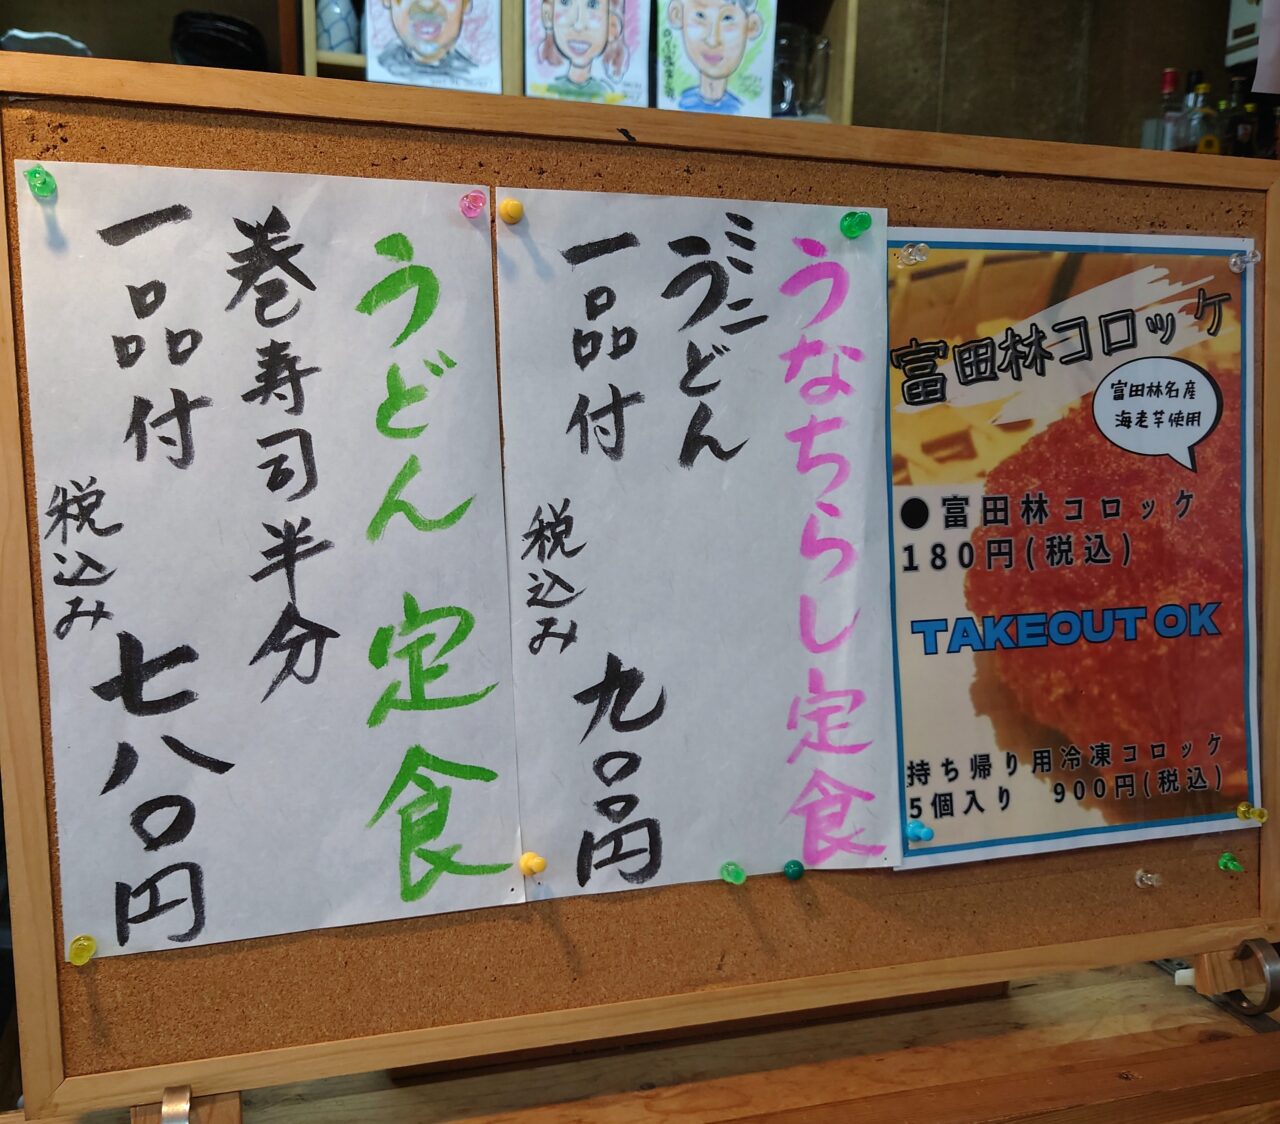 うどん定食
巻寿司半分
一品付
税込み
七八〇円
うなちらし定食
ミニ
うどん
一品付
税込み
九〇〇円
富田林コロッケ
富田林名産
海老芋使用
●富田林コロッケ
180円(税込)
TAKEOUT OK
持ち帰り用冷凍コロッケ
5個入り 900円(税込)